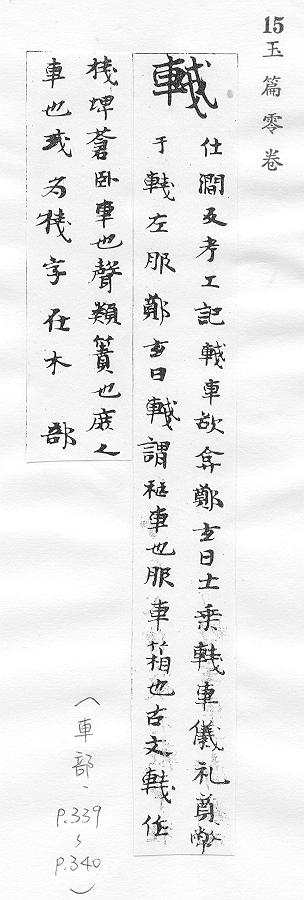 15
玉篇零卷
輚
仕澗反考工記輚車欲弇鄭玄曰士乘輚車儀礼奠幣
于輚左服鄭玄曰輚謂柩車也服車箱也古文輚作
棧埤蒼卧車也聲類簀也庋人
車也或為棧字在木部
(車部、
P.339
~
P.340)